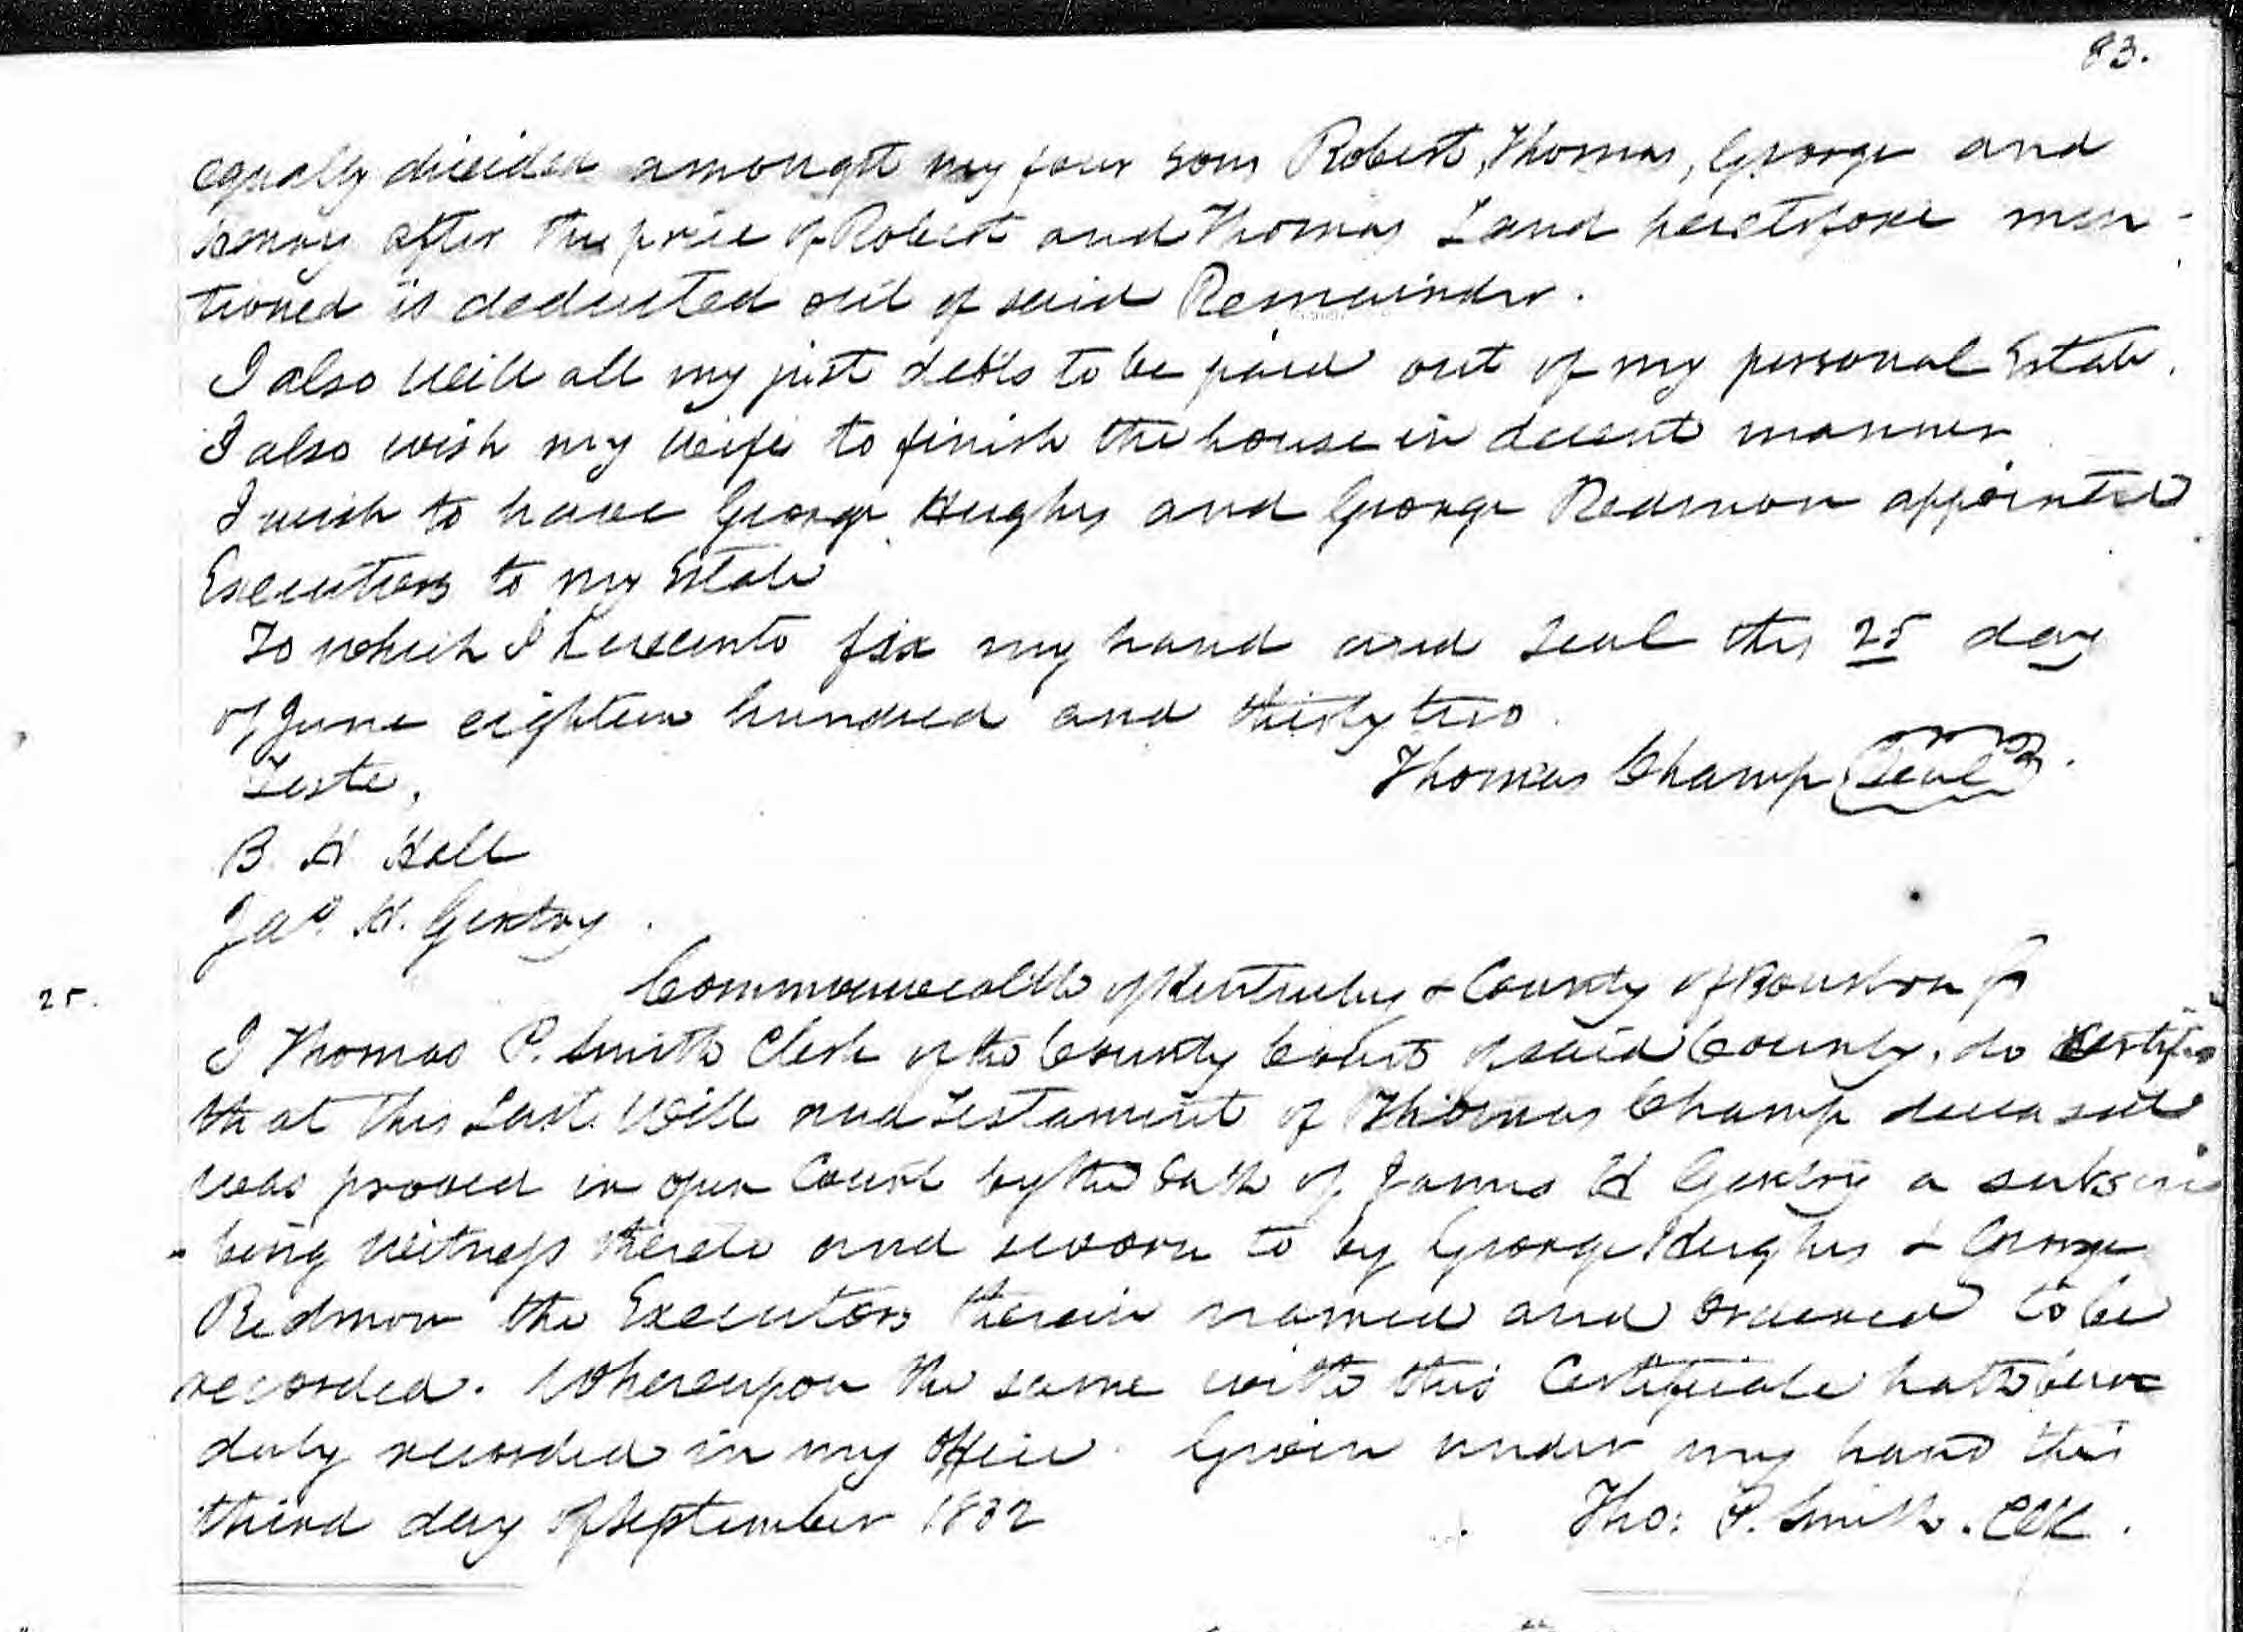 83.
equally divided amongst my four sons Robert, Thomas, George and
Henry after the price of Robert and Thomas Land heretofore men-
tioned is deducted out of said Remainder.
I also will all my just debts to be paid out of my personal Estate.
I also wish my wife to finish the house in decent manner
I wish to have George Hughes and George Redmon appointed
Executors to my Estate
To which I hereunto fix my hand and seal this 25 day
of June eighteen hundred and thirty two.
Teste,
Thomas Champ Seal.
B. H. Hall
Jas. H. Gentry.
25.
Commonwealth of Kentucky & County of Bourbon
I Thomas P. Smith Clerk of the County Court of said County, do certify
that this Last Will and Testament of Thomas Champ deceased
was proved in open Court by the Oath of James H Gentry a subscri
-bing Witness thereto and sworn to by George Hughes & George
Redmon the Executors therein named and ordered to be
recorded. Whereupon the same with this Certificate hath been
duly recorded in my Office. Given under my hand this
third day of September 1832
Tho: P. Smith. Clk.